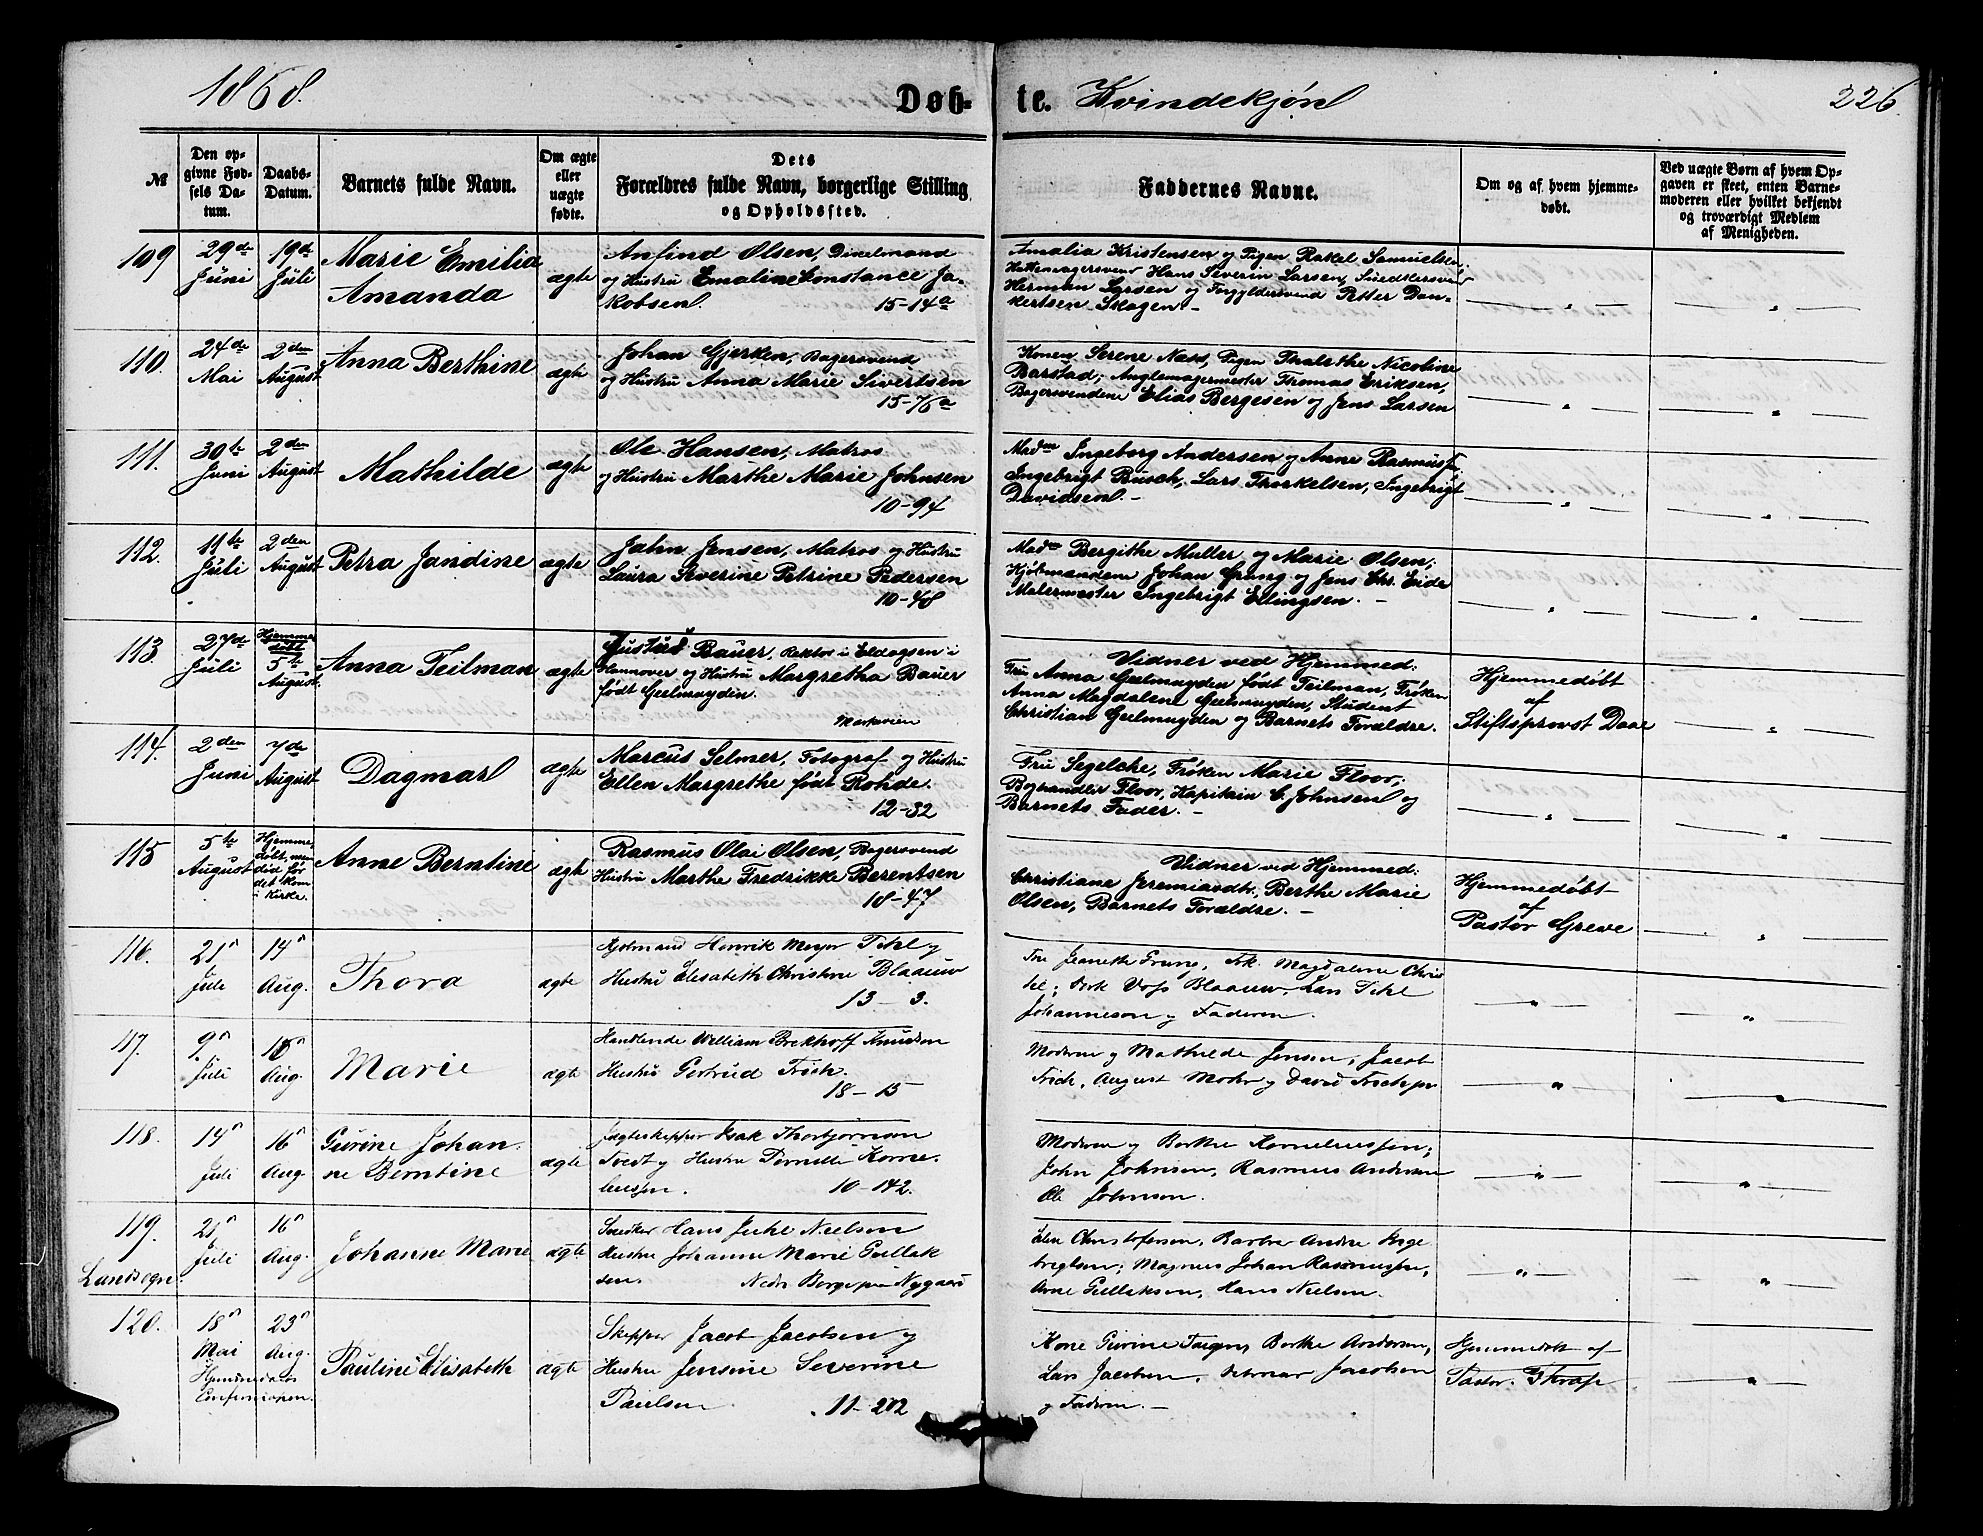 1868.
Døb-
te. Kvindekjøn
226.
№
Den op-
givne Fød-
sels Da-
tum.
Daabs-
Datum.
Barnets fulde Navn.
Om ægte
eller
uægte
fødte.
Dets
Forældres fulde Navn, borgerlige Stilling
og Opholdssted.
Faddernes Navne.
Om og af hvem hjemme-
døbt.
Ved uægte Børn af hvem Op-
gaven er skeet, enten Barne-
moderen eller hvilket bekjendt
og troværdigt Medlem
af Menigheden.
109
29de
Juni
19de
Juli
Marie Emilia
Amanda
ægte
Anfind Olsen,
og Hustru Emaline Constance Ja-
kobsen.
15-14a
Amalia Kristensen og Pigen Rakel Samuelsen,
Hattemagersvend Hans Severin Larsen, Snedkersvend
Herman Larsen og Forgyldersvend Petter Dan-
kertsen Skogen -
110.
24de
Mai
2den
August
Anna Berthine
ægte
Johan Gjerken, Bagersvend
og Hustru Anna Marie Sivertsen
15-76a
Konen Serene Næss, Pigen Thalethe Nicoline
Barstad; Anglemagermester Thomas Eriksen,
Bagersvendene Elias Bergesen og Jens Larsen
111.
30te
Juni
2den
August
Mathilde
ægte
Ole Hansen, Matros
og Hustru Marthe Marie Johnsen
10-94
Madm Ingeborg Andersen og Anne
Ingebrigt Busch, Lars Thorkelsen, Ingebrigt
Davidsen. -
112.
11te
Juli
2den
August
Petra Jandine
ægte
John Jensen, Matros og Hustru
Laura Severine Petrine Pedersen
10-48
Madm Bergithe Muller og Marie Olsen;
Kjøbmændene Johan Grung og Jens Chr. Eide
Malermester Ingebrigt Ellingsen. -
113.
27de
Juli
Hjemme-
døbt
5te
August.
Anna Teilman
ægte
Justus Bauer, Rektor i Eldagsen i
Hannover og Hustru Margretha Bauer
født Geelmuyden.
Vidner ved Hjemmed.
Fru Anna Geelmuyden født Teilman, Frøken
Anna Magdalene Geelmuyden, Student
Christian Geelmuyden og Barnets Forældre.
Hjemmedøbt
af
Stiftsprovst Daae
114.
2den
Juni
7de
August
Dagmar
ægte
Marcus Selmer, Fotograf og Hustru
Ellen Margrethe født Rohde.
12-32
Fru Segelcke, Frøken Marie Floor;
Boghandler Floor, Kapitain C. Johnsen og
Barnets Fader. -
115
5te
August
Hjemme-
døbt, men
død før
det kom
i Kirke.
Anne Berntine
ægte
Rasmus Olai Olsen, Bagersvend
Hustru Marthe Fredrikke Berentsen
18-47
Vidner ved Hjemmed.
Christiane Jeremiasdtr, Berthe Marie
Olsen, Barnets Forældre. -
Hjemmedøbt
af
Pastor Greve
116.
21
Juli
14
Aug.
Thora
ægte
Kjøbmand Henrik Meyer Tihl og
Hustru Elisabeth Christine Blaauw
13-3.
Fru Jeanette Grung, Frk. Magdalene Chris
Dirk Voss Blaauw, Lars Tihl
Johannesen og Faderen.
117.
9
Juli
15
Aug.
Marie
ægte
Handlende William Brekhoff Knudsen
Hustru Gertrud Frich.
18-15
Moderen og Mathilde Jensen; Jacob
Frich, August Mohr og David Frich
118.
14
Juli
16
Aug.
Gurine Johan-
ne Berntine
ægte
Jægteskipper Isak Thorbjørnsen
Tvedt og Hustru Pernille Korne-
liussen.
10-142.
Moderen og Berthe Korneliussen;
John Johnsen, Rasmus Andersen
Ole Johnsen.
119.
Landsogn
21
Juli
16
Aug.
Johanne Marie
ægte
Snedker Hans Juhl Nielsen
Hustru Johanne Marie Gullak
sen.
Christofersen, Barbra Andrea Inge
brigtsen; Magnus Johan Rasmussen,
Arne Gullaksen, Hans Nielsen.
120.
18
Mai
23
Aug.
Pauline Elisabeth
ægte
Skipper Jacob Jacobsen og
Hustru Jensine Severine
Paulsen.
11-202
Kone Gurine Berthe Andersen,
Lars Jacobsen, Jacobsen
og Faderen. -
Hjemmedøbt af
Pastor